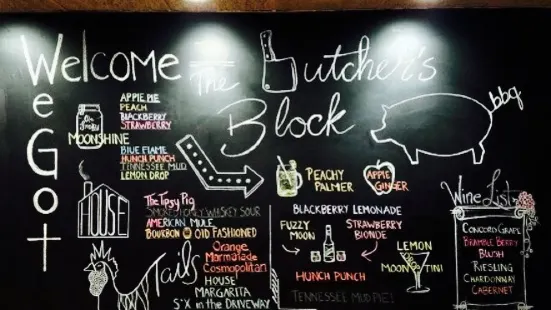 Welcome
We Got
The Butcher's Block
bbq
Ole Smoky
MOONSHINE
APPLE PIE
PEACH
BLACKBERRY
STRAWBERRY
BLUE FLAME
HUNCH PUNCH
TENNESSEE MUD
LEMON DROP
HOUSE
The Tipsy Pig
SMOKEY HONEY WHISKEY SOUR
AMERICAN MULE
BOURBON OLD FASHIONED
Tails
Orange
Marmalade
Cosmopolitan
HOUSE
MARGARITA
S*X in the DRIVEWAY
PEACHY
PALMER
APPLE
GINGER
BLACKBERRY LEMONADE
FUZZY
MOON
STRAWBERRY
BLONDE
HUNCH PUNCH
LEMON
MOON TINI
TENNESSEE MUD PIE!
Wine List
CONCORD GRAPE
BRAMBLE BERRY
BLUSH
RIESLING
CHARDONNAY
CABERNET